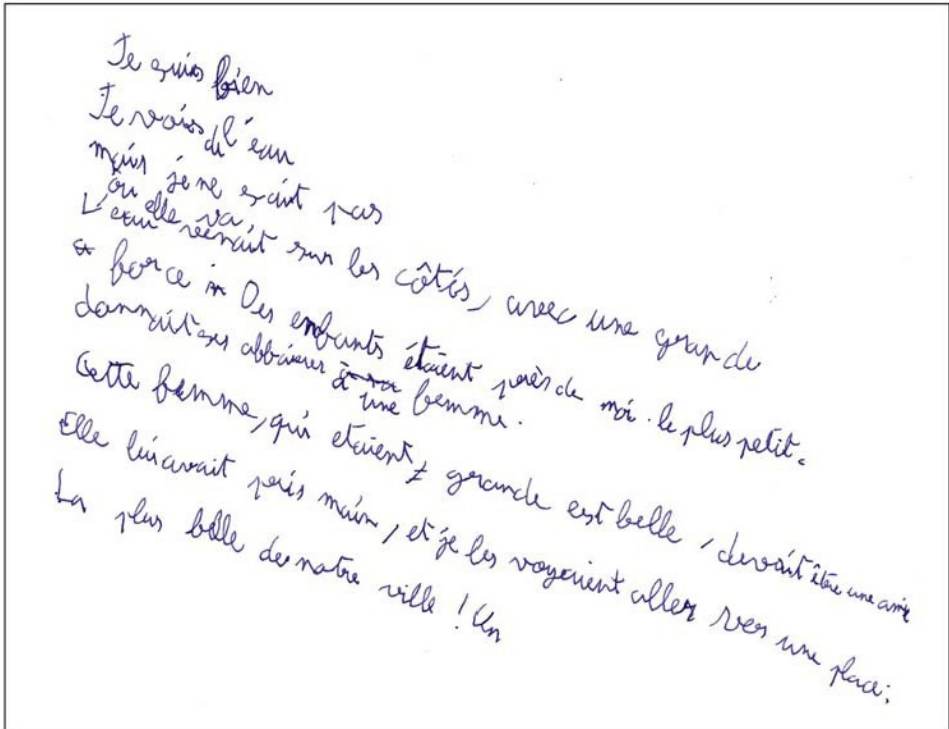 Je suis bien
Je vois de l'eau
mais je ne sait pas
ou elle va
L'eau venait sur les côtés, avec une grande
force Des enfants étaient près de moi. le plus petit.
donnait ses affaires à une femme.
Cette femme, qui etaient, grande est belle, devait être une amie
Elle lui avait pris main, et je les voyaient aller vers une place.
La plus belle de notre ville ! Un